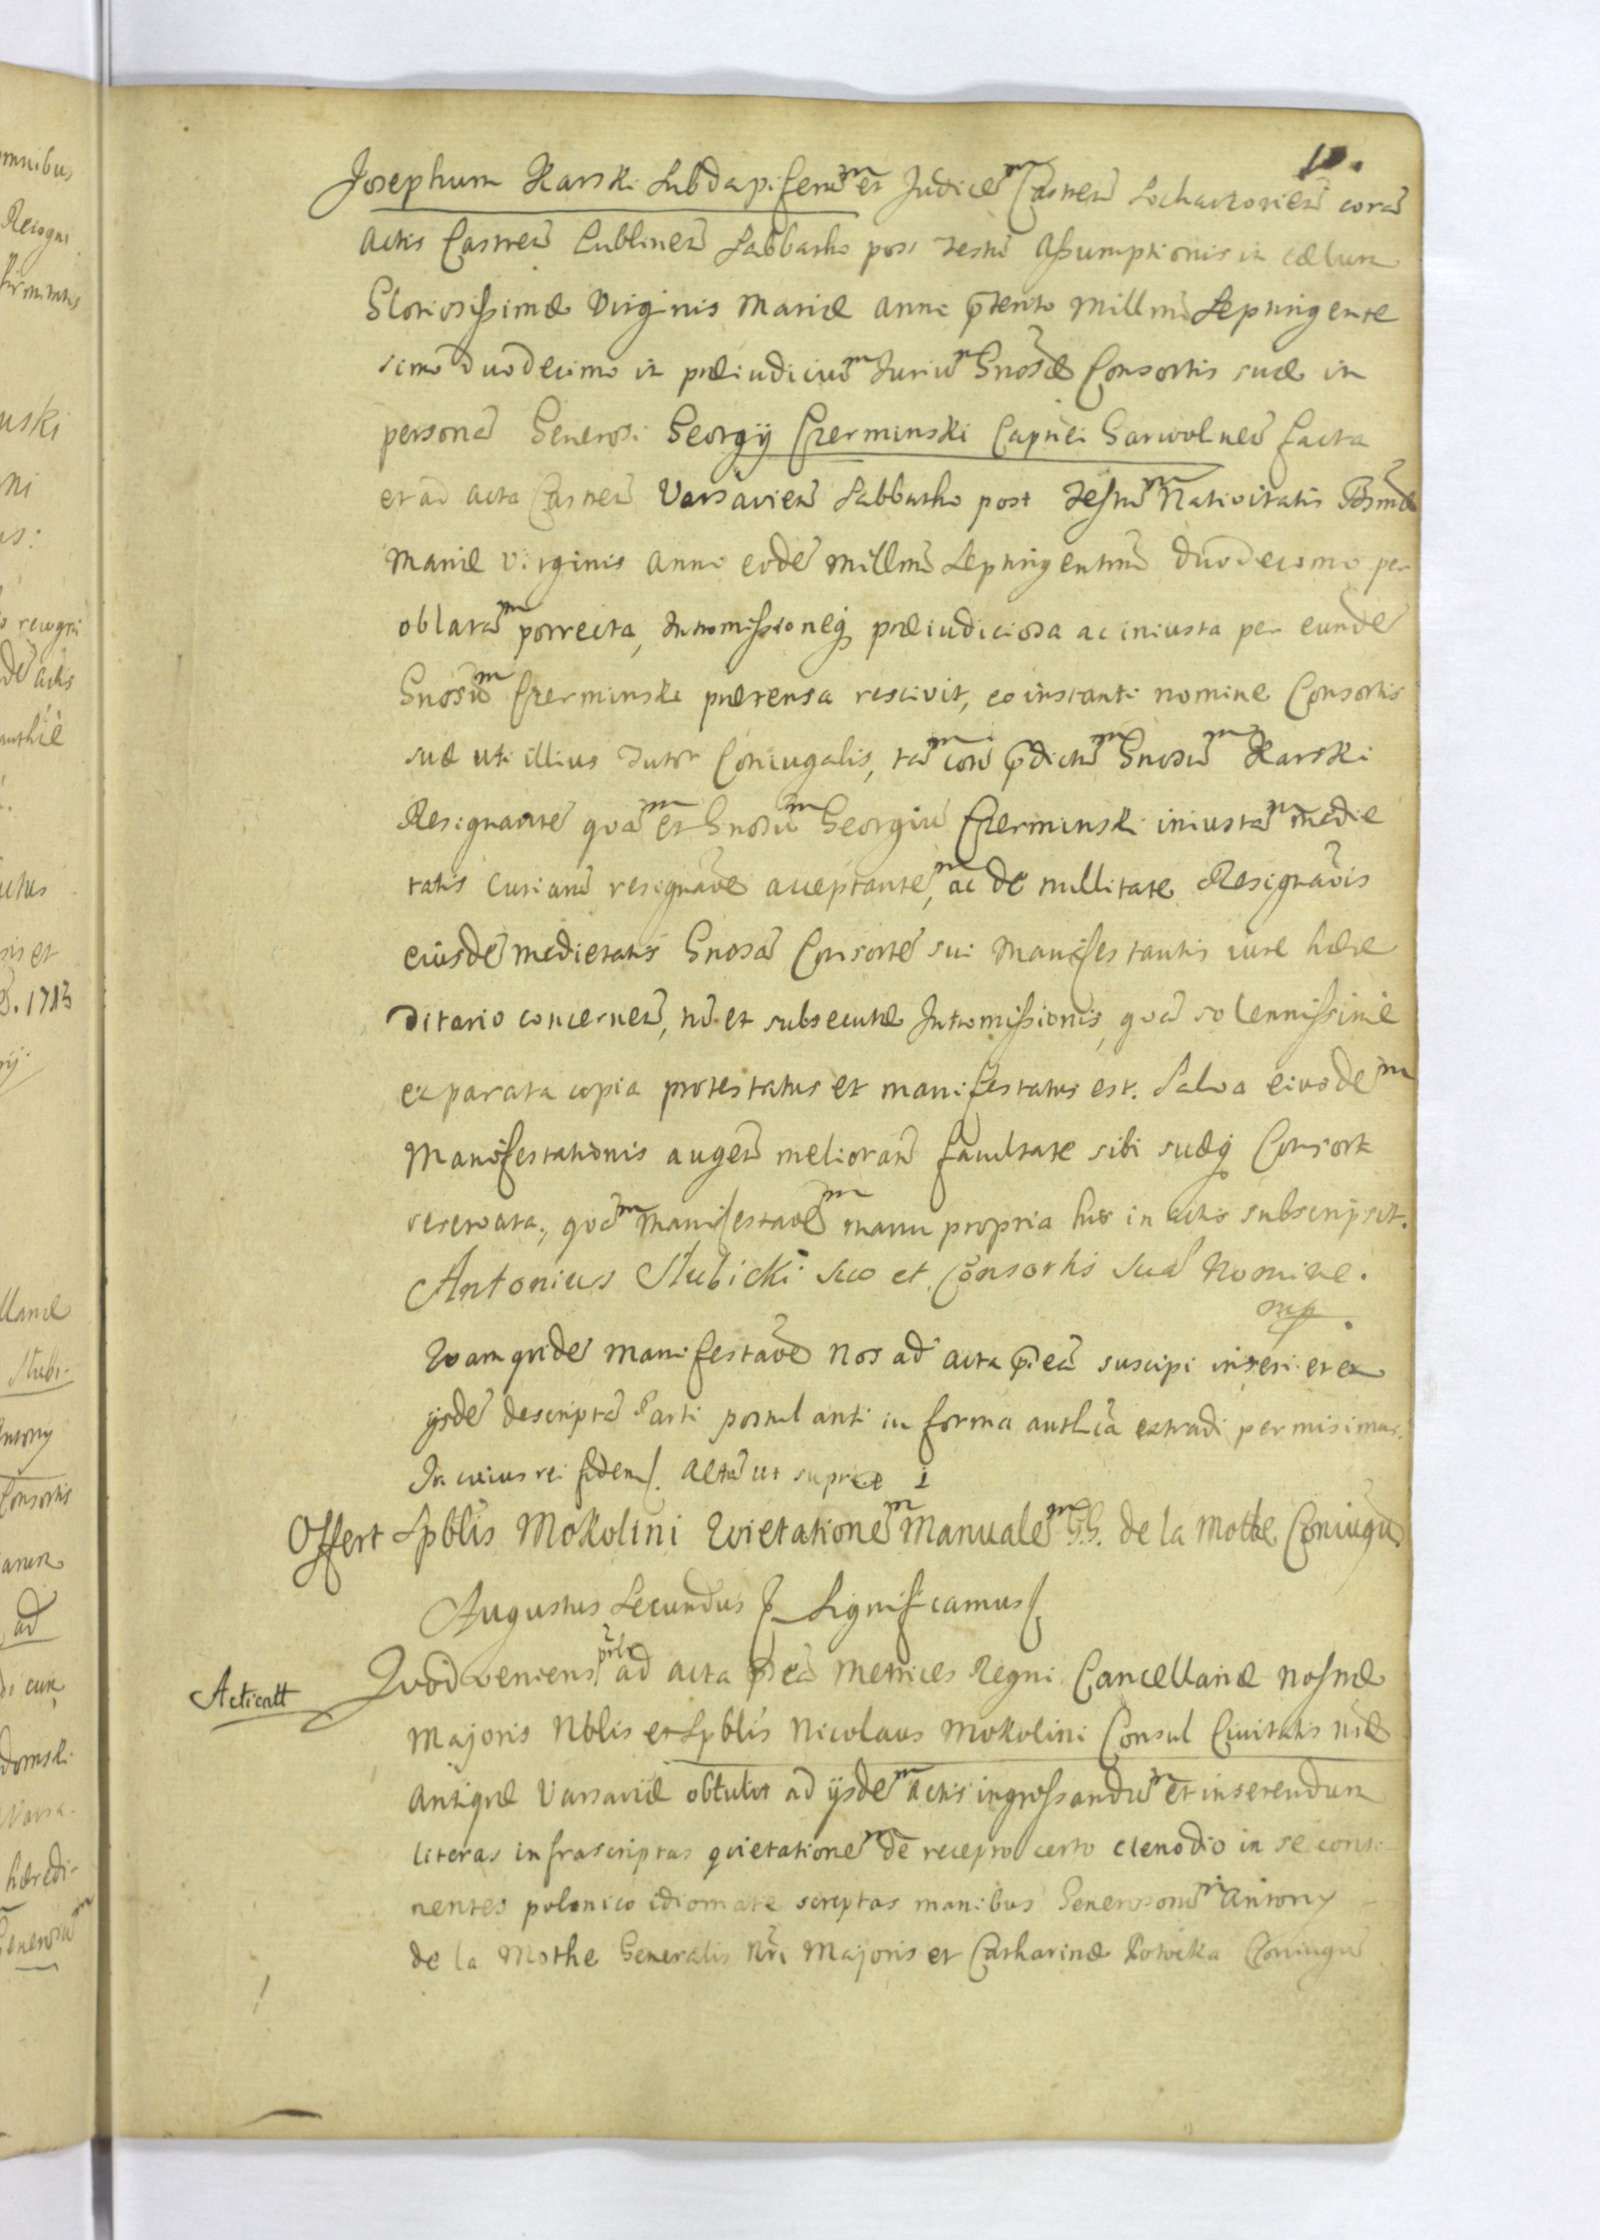 10.
Josephum Karski Subdapiferũm et Judicẽm Castreñ Sochaczovieñ corã
Actis Castreñ Lublineñ Sabbatho post Festũ Assumptionis in cælum
Gloriosissimæ Virginis Mariæ Anni p̃terito Millmo Septingente
simo duodecimo in præiudiciũm Juriũm Gnosæ Consortis suæ in
personã Generosi Georgij Czerminski Capnei Garwolineñ facta
et ad acta Castreñ Varsavieñ Sabbatho post Festũm Nativitatis Bsmæ
Mariæ Virginis Anno eodẽ Millmo Septingentmo duodecimo per
oblatãm porrecta, Intromissioneq̃ præiudiciosa ac iniusta per eundẽ
Gnosũm Czerminski prætensa rescivit, eo instanti nomine Consortis
suæ uti illius Tutor Coniugalis, tãm cont p̃dictũm Gnosũm Karski
Resignantẽ quãm et Gnosũm Georgiũ Czerminski iniustãm medie
tatis Curiarũ resignaõe acceptantẽm, ac de nullitate Resignaõis
eiusdẽ medietatis Gnosã Consortẽ sui Manifestantis iure hære
ditario concerneñ, tũ et subsecutæ Intromissionis, quã solennissime
ex parata copia protestatus et manifestatus est. Salva eiusdẽm
Manifestationis augeñ meliorañ facultate sibi suæq̃ Consorti
reservata, quãm Manifestaõẽm manu propria hic in actis subscripsit.
Antonius Słubicki suo et Consortis suæ Nomine.
mp
Quamquidẽ Manifestaõẽ Nos ad acta p̃ñtia suscipi inseri et ex
ijsdẽ descriptã Parti postulanti in forma authca extradi permisimus.
In cuius rei fidem. Actũ ut supra
Offert Spblis Mokolini Quietationẽm Manualẽm G.G. de la Mothe Coniugũ
Augustus Secundus Significamus
Acticatt
Quod veniens prlr ad acta p̃ñtia Metrices Regni Cancellariæ Nostræ
Majoris Nblis et Spblis Nicolaus Mokolini Consul Civitatis Nræ
Antiquæ Varsaviæ obtulit ad ijsdẽm actis ingrossandũm et inserendum
literas infrascriptas quietationẽm de recepto certo clenodio in se conti
nentes polonico idiomate scriptas manibus Generosorũm Antony
de la Mothe Generalis Nri Majoris et Catharinæ Coniugũ